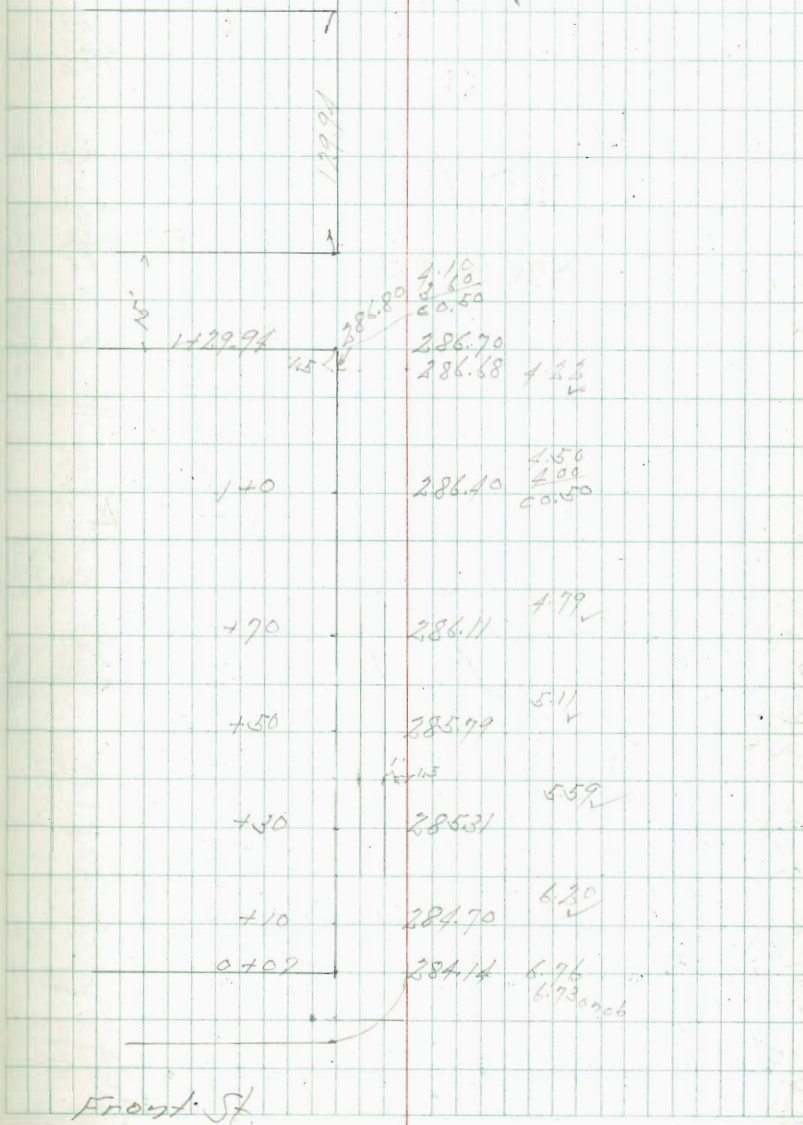 129.94
286.80
4.10
3.60
c0.50
12'
1+29.94
286.70
1.5
286.68 4.22
1+0
286.40
4.50
4.00
c0.50
+70
286.11
4.79
+50
285.79
5.11
1.5
+30
285.31
5.59
+10
284.70
6.20
0+02
284.14 6.76
6.73 on cb
Front St.